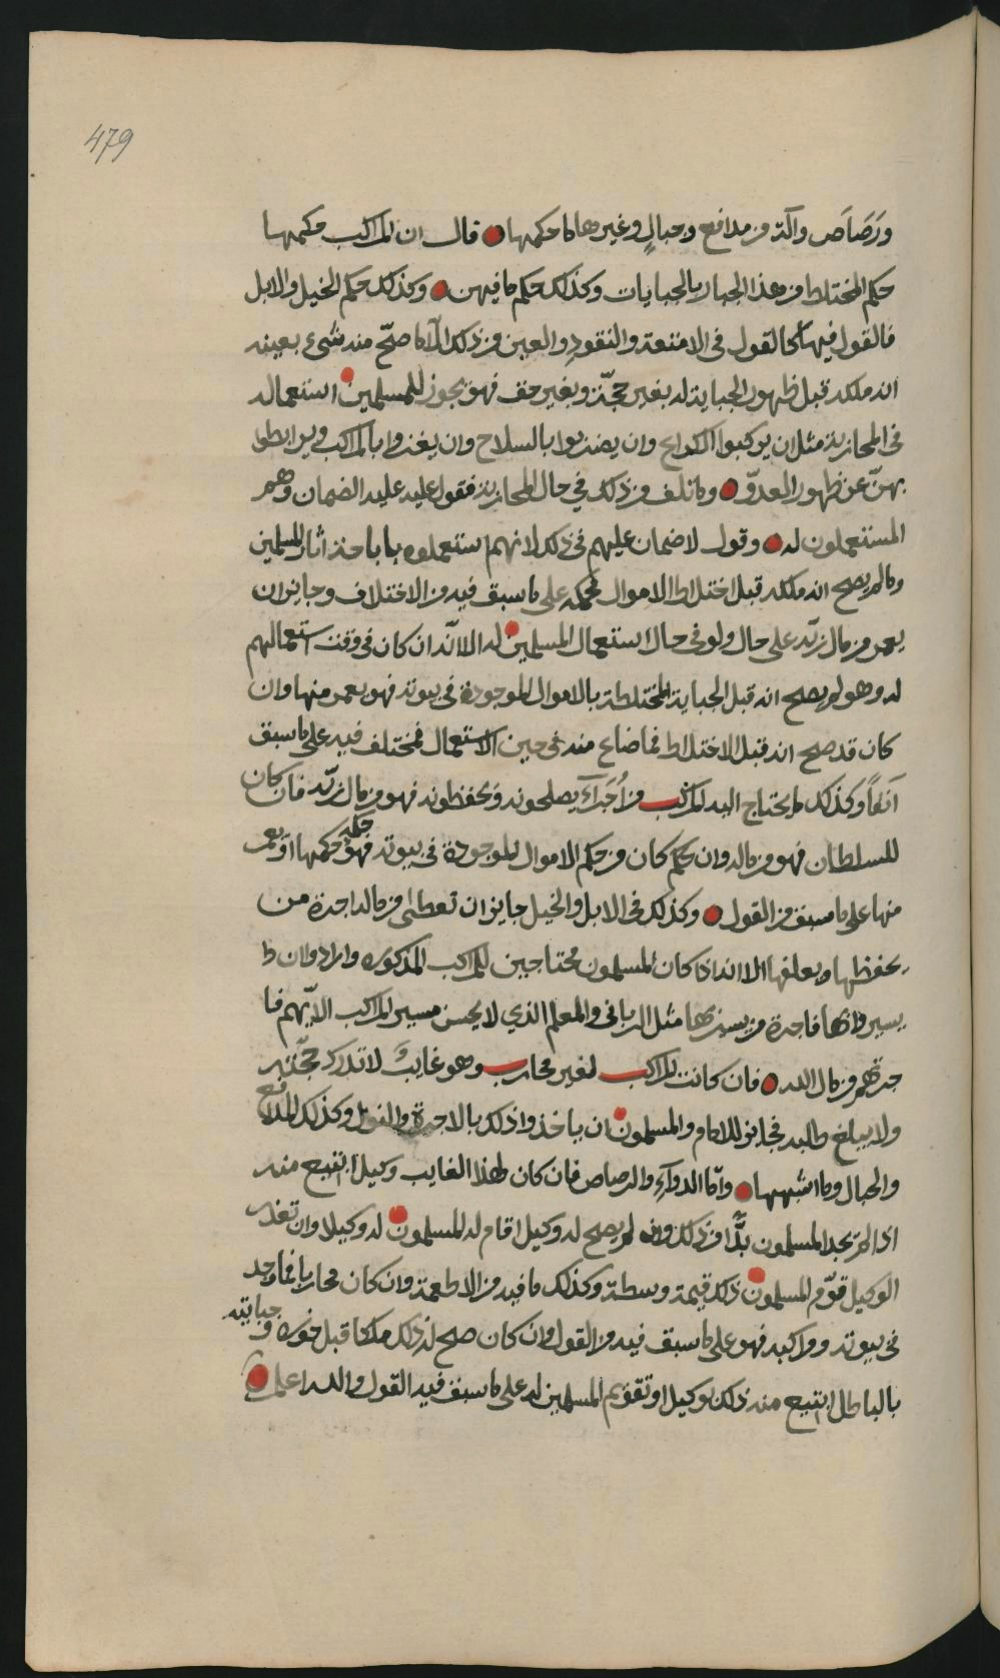 479
ورَصَاص وآلة من مدافع وحبالٍ وغيرها ما حكمها قال ان المراكب حكمها
حكم المختلط من هذا الجبار بالجبايات وكذلك حكم ما فيهن وكذلك حكم الخيل والابل
فالقول فيها كالقول فى الامتعة والنقود والعين من ذلك الا ما صحّ منه شيء بعينه
انه ملكه قبل ظهور الجباية له بغير حجّة وبغير حق فهو يجوز للمسلمين استعماله
فى المحاربة مثل ان يركبوا الكراع وان يضربوا بالسلاح وان يغزوا بالمراكب ويرابطوا
بهنّ عن ظهور العدوّ وما تلف من ذلك في حال المحاربة فقول عليه عليه الضمان وهم
المستعملون له وقول لا ضمان عليهم فى ذلك لانهم استعملوه باباحة اثار المسلمين
وما لم يصح انه ملكه قبل اختلاط الاموال فحكمه على ما سبق فيه من الاختلاف وجايز ان
يعمر من مال ربّه على حال ولو فى حال استعمال المسلمين له الا انّه ان كان فى وقت استعمالهم
له وهو لم يصح انه قبل الجباية المختلطة بالاموال الموجودة فى بيوته فهو يعمر منها وان
كان قد صح انه قبل الاختلاط فما ضاع منه فى حين الاستعمال فمختلف فيه على ما سبق
آنفاً وكذلك ما يحتاج اليه المراكب من اُجَراءَ يصلحونه ويحفظونه فهو من مال ربّه فان كان
للسلطان فهو من ماله وان بحكم كان من حكم الاموال الموجودة فى بيوته فهو حكمه حكمها او يعمر
منها على ما سبق من القول وكذلك فى الابل والخيل جايز ان تعطى من مالها اجرة من
يحفظها ويعلفها الا انه اذا كان المسلمون محتاجين للمراكب المذكوره وارادوا ان
يسيروا بها فاجرة من يسيرها مثل الربانى والمعلم الذي لا يحسن مسير المراكب الا بهم فا
جرتهم من مال الله فان كانت المراكب لغير محارب وهو غايب لا تدرك حجّته
ولا يبلغ طالبه فجايز للامام والمسلمون ان ياخذوا ذلك بالاجرة والنول وكذلك المدافع
والحبال وما اشبهها وامّا الدوآء والرصاص فان كان لهذا الغايب وكيل ابتيع منه
اذا لم يجد المسلمون بدًّا من ذلك وان لم يصح له وكيل اقام له المسلمون له وكيلا وان تعذر
الوكيل قوّم المسلمون ذلك قيمة وسطة وكذلك ما فيه من الاطعمة وان كان محاربا فما وجد
فى بيوته ومراكبه فهو على ما سبق فيه من القول وان كان صح له ذلك ملكا قبل جوره وجبايته
بالباطل ابتيع منه ذلك بوكيل او تقويم المسلمين له على ما سبق فيه القول والله اعلم